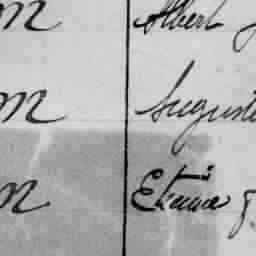 m Albert
m Auguste
m Etienne